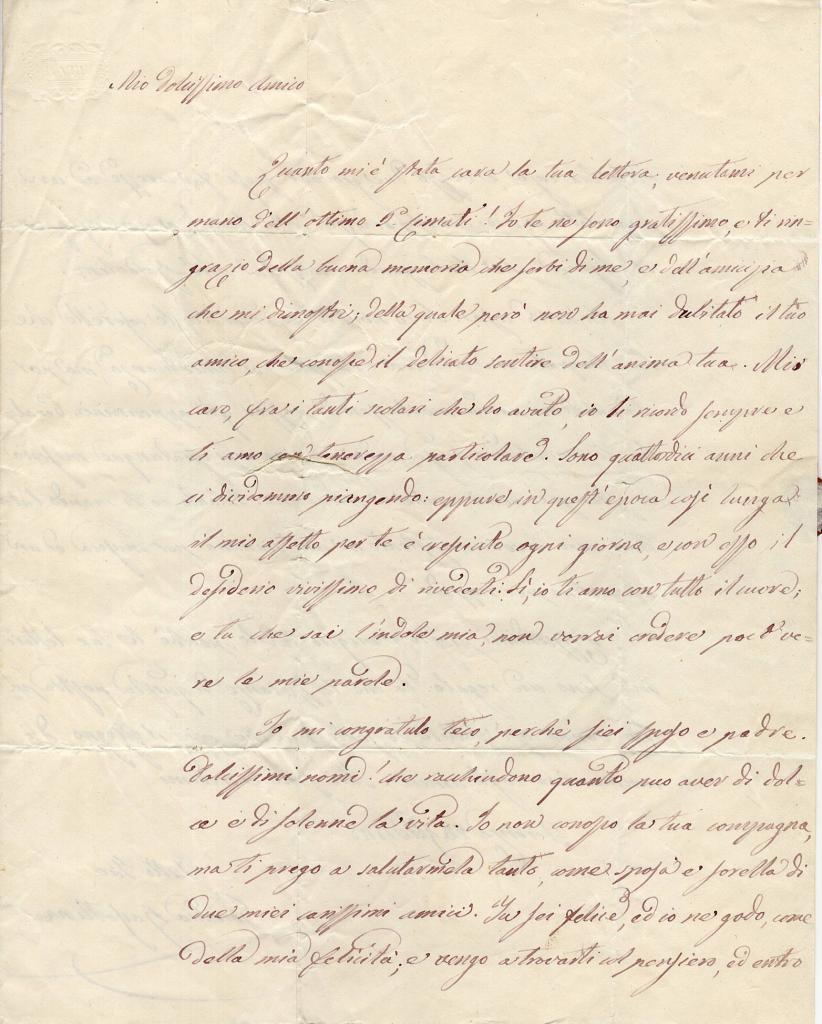 Mio dolcissimo Amico
Quanto mi è stata cara la tua lettera, venutami per
mano dell'ottimo P.e Cimati! Io te ne sono gratissimo, e ti rin=
grazio della buona memoria che serbi di me, e dell'amicizia
che mi dimostri; della quale però non ha mai dubitato il tuo
amico, che conosce il delicato sentire dell'anima tua. Mio
caro, fra i tanti scolari che ho avuto, io ti ricordo sempre e
ti amo con tenerezza particolare. Sono quattordici anni che
ci dividemmo piangendo: eppure in quest'epoca così lunga
il mio affetto per te è cresciuto ogni giorno, e con esso il
desiderio vivissimo di rivederti. Sì, io ti amo con tutto il cuore;
e tu che sai l'indole mia, non vorrai credere poco ve=
re le mie parole.
Io mi congratulo teco, perchè siei sposo e padre.
Dolcissimi nomi! che racchiudono quanto può aver di dol=
ce e di solenne la vita. Io non conosco la tua compagna,
ma ti prego a salutarmela tanto, come sposa e sorella di
due miei carissimi amici. Tu sei felice, ed io ne godo, come
della mia felicità; e vengo a trovarti col pensiero, ed entro